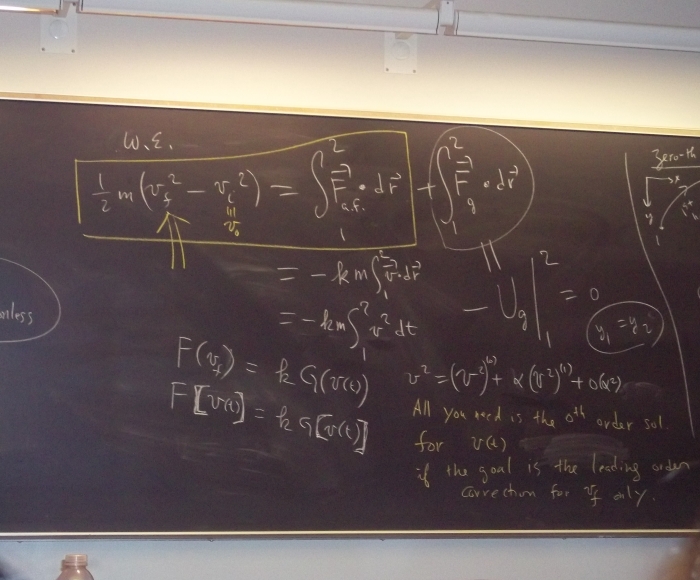 W.E.
½ m (v_f² − v_i²) = ∫₁² F⃗_a.f. · dr⃗ + ∫ ² F⃗_g · dr⃗
||| v₀
= −km ∫₁² v⃗·dr⃗
− U_g |₁² = 0
= −km ∫₁² v² dt
y₁ = y₂
F(v_f) = k G(v(t))
F[v(t)] = k G[v(t)]
v² = (v²)⁽⁰⁾ + α (v²)⁽¹⁾ + O(α²)
All you need is the 0th order sol.
for v(t)
if the goal is the leading order
correction for v_f only.
nless
Zero-th
x
y
1